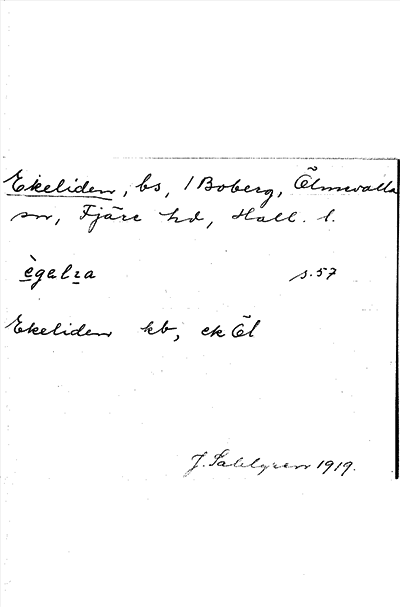 Ekeliden, bs, / Boberg, Ölmevalla
sn, Fjäre hd, Hall. l.
ègalıa s. 57
Ekeliden kb, ek Öl
J. Sahlgren 1919.